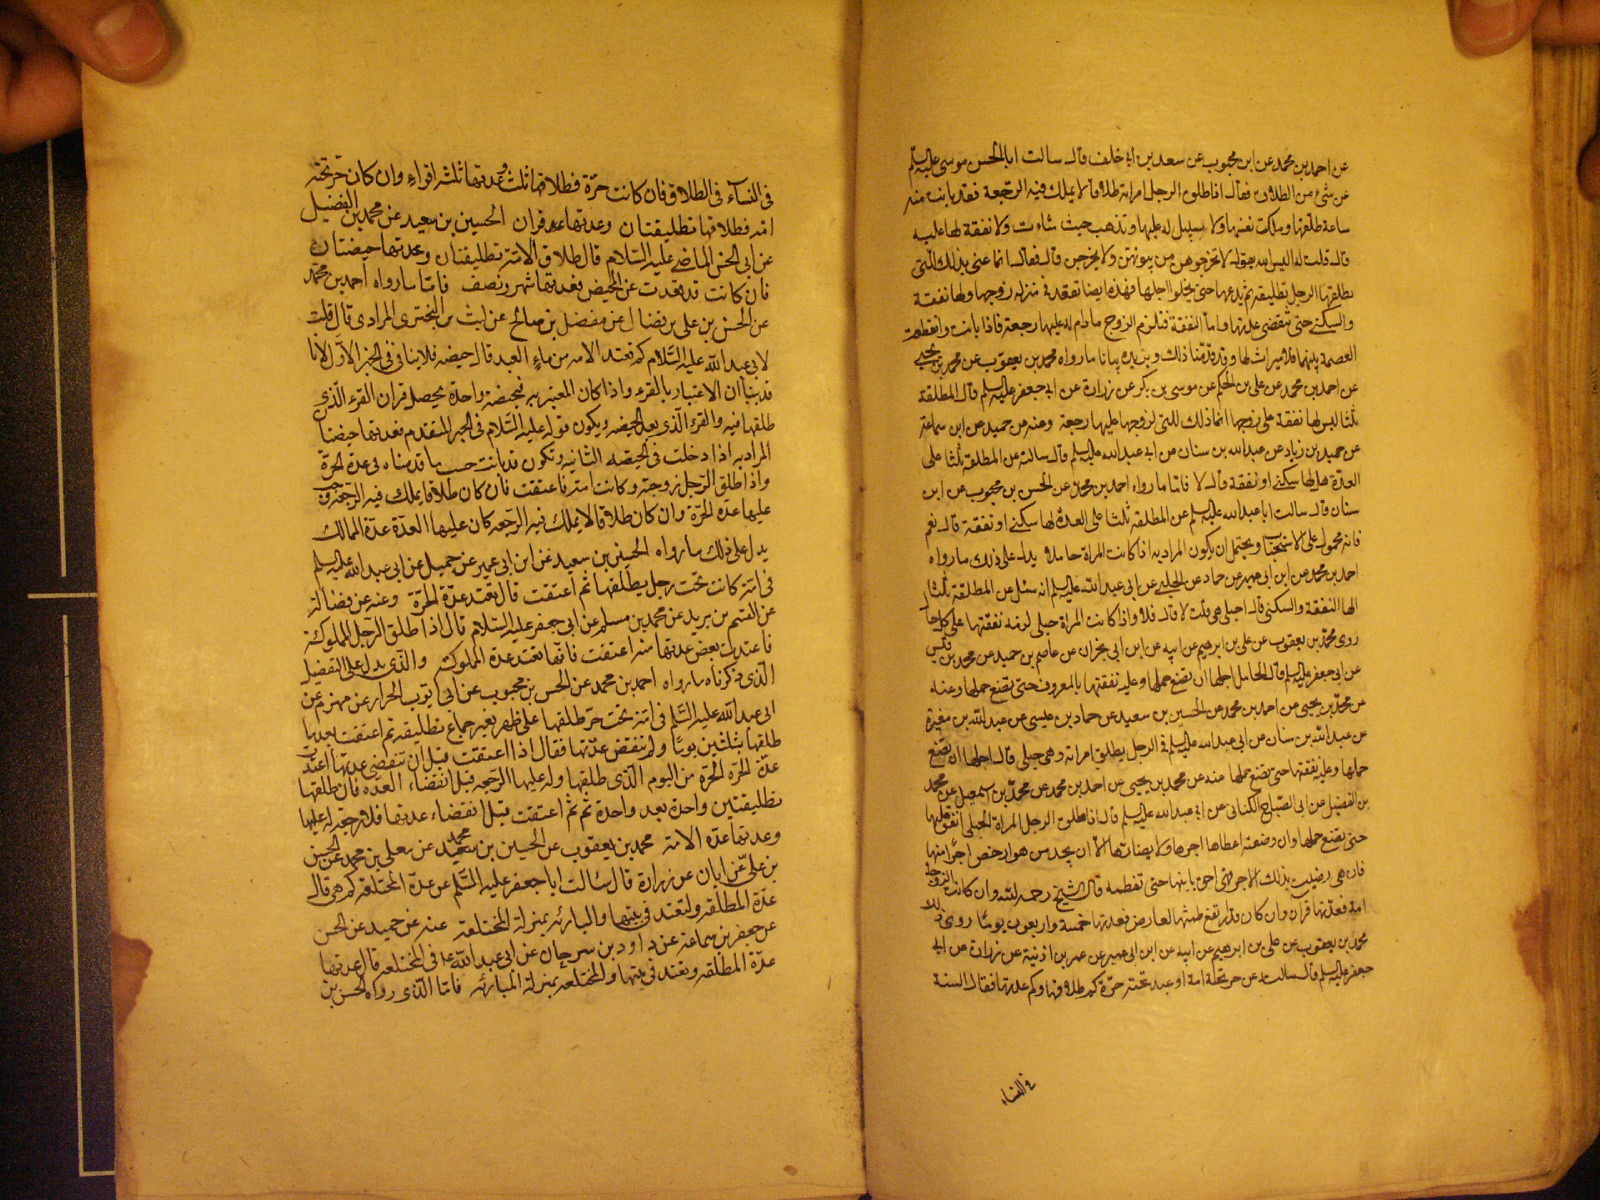 عن احمد بن محمد عن ابن محبوب عن سعد بن ابي خلف قال سالت ابا الحسن موسى عليه السلم
عن شئ من الطلاق فقال اذا طلق الرجل امراته طلاقا لا يملك فيه الرجعة فقد بانت منه
ساعة طلقها وملكت نفسها ولا سبيل له عليها وتذهب حيث شاءت ولا نفقة لها عليه
قال قلت له اليس الله يقول لا تخرجوهن من بيوتهن ولا يخرجن قال فقال انما عنى بذلك التي
يطلقها الرجل تطليقة ثم يدعها حتى يخلوا اجلها فهذه ايضا تقعد في منزل زوجها ولها نفقة
والسكنى حتى تنقضي عدتها واما النفقة فتلزم الزوج مادام له عليها رجعة فاذا بانت وانقطعت
العصمة بينهما فلا ميراث لها وقد قدمنا ذلك ويزيده بيانا ما رواه محمد بن يعقوب عن محمد بن يحيى
عن احمد بن محمد عن علي بن الحكم عن موسى بن بكر عن زرارة عن ابي جعفر عليه السلم قال المطلقة
ثلثا ليس لها نفقة على زوجها انما ذلك للتي لزوجها عليها رجعة وعنه عن حميد عن ابن سماعة
عن محمد بن زياد عن عبد الله بن سنان عن ابي عبد الله عليه السلم قال سالته عن المطلقة ثلثا على
العدة هل لها سكنى او نفقة قال لا فاما ما رواه احمد بن محمد عن الحسن بن محبوب عن ابن
سنان قال سالت ابا عبد الله عليه السلم عن المطلقة ثلثا على العدة لها سكنى او نفقة قال نعم
فانه محمول على الاستحباب ويحتمل ان يكون المراد به اذا كانت المراة حاملا يدل على ذلك ما رواه
احمد بن محمد عن ابن ابي عمير عن حماد عن الحلبي عن ابي عبد الله عليه السلم انه سئل عن المطلقة ثلثا
الها النفقة والسكنى قال احبلى هي قلت لا قال فلا واذا كانت المراة حبلى لزمه نفقتها على كل حال
روى محمد بن يعقوب عن علي بن ابرهيم عن ابيه عن ابن ابي نجران عن عاصم بن حميد عن محمد بن قيس
عن ابي جعفر عليه السلم قال الحامل اجلها ان تضع حملها وعليه نفقتها بالمعروف حتى تضع حملها وعنه
عن محمد بن يحيى عن احمد بن محمد عن الحسين بن سعيد عن حماد بن عيسى عن عبد الله بن مغيرة
عن عبد الله بن سنان عن ابي عبد الله عليه السلم في الرجل يطلق امراته وهي حبلى قال اجلها ان تضع
حملها وعليه نفقتها حتى تضع حملها عنه عن محمد بن يحيى عن احمد بن محمد عن محمد بن اسمعيل عن محمد
بن الفضيل عن ابي الصباح الكناني عن ابي عبد الله عليه السلم قال اذا طلق الرجل المراة الحبلى انفق عليها
حتى تضع حملها وان وضعته اعطاها اجرها ولا يضارها الا ان يجد من هو ارخص اجرا منها
فان هي رضيت بذلك الاجر فهي احق بابنها حتى تفطمه قال الشيخ رحمه الله وان كانت الزوجة
امة فعدتها قرآن وان كان قد ارتفع طمثها لعارض فعدتها خمسة واربعون يوما روى ذلك
محمد بن يعقوب عن علي بن ابرهيم عن ابيه عن ابن ابي عمير عن عمر بن اذنية عن زرارة عن ابي
جعفر عليه السلم قال سالت عن حر تحته امة او عبد تحته حرة كم طلاقها وكم عدتها فقال السنة
في النساء
في النسآء في الطلاق فان كانت حرة فطلاقها ثلث وعدتها ثلثه اقراء وان كان حر تحته
امة فطلاقها تطليقتان وعدتها قران الحسين بن سعيد عن محمد بن الفضيل
عن ابي الحسن الماضي عليه السلام قال طلاق الامة تطليقتان وعدتها حيضتان
فان كانت قد قعدت عن الحيض فعدتها شهر ونصف فاما ما رواه احمد بن محمد
عن الحسن بن علي بن فضال عن مفضل بن صالح عن ليث بن البختري المرادي قال قلت
لابي عبد الله عليه السلام كم تعتد الامه من ماء العبد قال حيضه فلا ينافي الخبر الاول لانا
قد بينا ان الاعتبار بالقرء واذا كان المعتبر به فبحيضة واحدة يحصل قران القرء الذي
طلقها فيه والقرء الذي بعد الحيضه ويكون قوله عليه السلام في الخبر المتقدم فعدتها حيضتان
المراد به اذا دخلت في الحيضه الثانيه وتكون قد بانت حسب ما قدمناه في عدة الحرة
واذا طلق الرجل زوجته وكانت امة فاعتقت فان كان طلاقا يملك فيه الرجعة وجب
عليها عدة الحرة وان كان طلاقا لا يملك فيه الرجعه كان عليها العدة عدة المماليك
يدل على ذلك ما رواه الحسين بن سعيد عن ابن ابي عمير عن جميل عن ابي عبد الله عليه السلم
في امة كانت تحت رجل يطلقها ثم اعتقت قال تعتد عدة الحرة وعنه عن فضالة
عن القسم بن بريد عن محمد بن مسلم عن ابي جعفر عليه السلام قال اذا طلق الرجل المملوكة
فاعتدت بعض عدتها منه اعتقت فانها تعتد عدة المملوكة والذي يدل على التفصيل
الذي ذكرناه ما رواه احمد بن محمد عن الحسن بن محبوب عن ابي ايوب الخزار عن مهزم عن
ابي عبد الله عليه السلم في امة تحت حر طلقها على طهر بغير جماع تطليقه ثم اعتقت بعد ما
طلقها بثلثين يوما ولم تنقض عدتها فقال اذا اعتقت قبل ان تنقضي عدتها اعتدت
عدة الحرة من اليوم الذي طلقها وله عليها الرجعه قبل انقضاء العده فان طلقها
تطليقتين واحدة بعد واحدة ثم اعتقت قبل انقضاء عدتها فلا رجعة له عليها
وعدتها عدة الامة محمد بن يعقوب عن الحسين بن محمد عن معلى بن محمد عن الحسن
بن علي عن ابان عن زرارة قال سالت ابا جعفر عليه السلم عن عدة المختلعه كم هي قال
عدة المطلقه ولتعتد في بيتها والمبارئه بمنزلة المختلعة عنه عن حميد عن الحسن
عن جعفر بن سماعة عن داود بن سرحان عن ابي عبد الله ع في المختلعه قال عدتها
عدة المطلقه وتعتد في بيتها والمختلعه بمنزلة المبارئه فاما الذي رواه الحسن بن